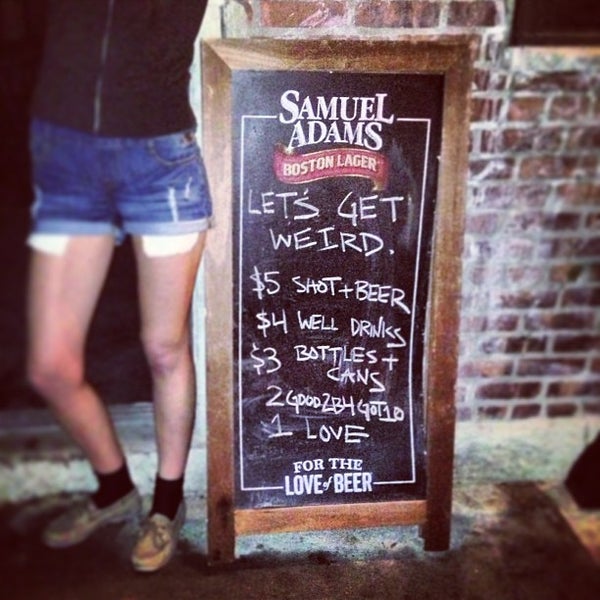 SAMUEL
ADAMS
BOSTON LAGER
LET'S GET
WEIRD.
$5 SHOT + BEER
$4 WELL DRINKS
$3 BOTTLES +
CANS
2 GOOD2B4GOT10
1 LOVE
FOR THE
LOVE of BEER